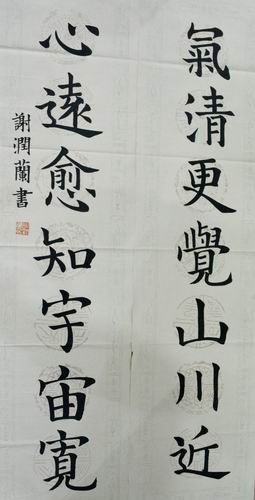 氣清更覺山川近
心遠愈知宇宙寛
謝潤蘭書